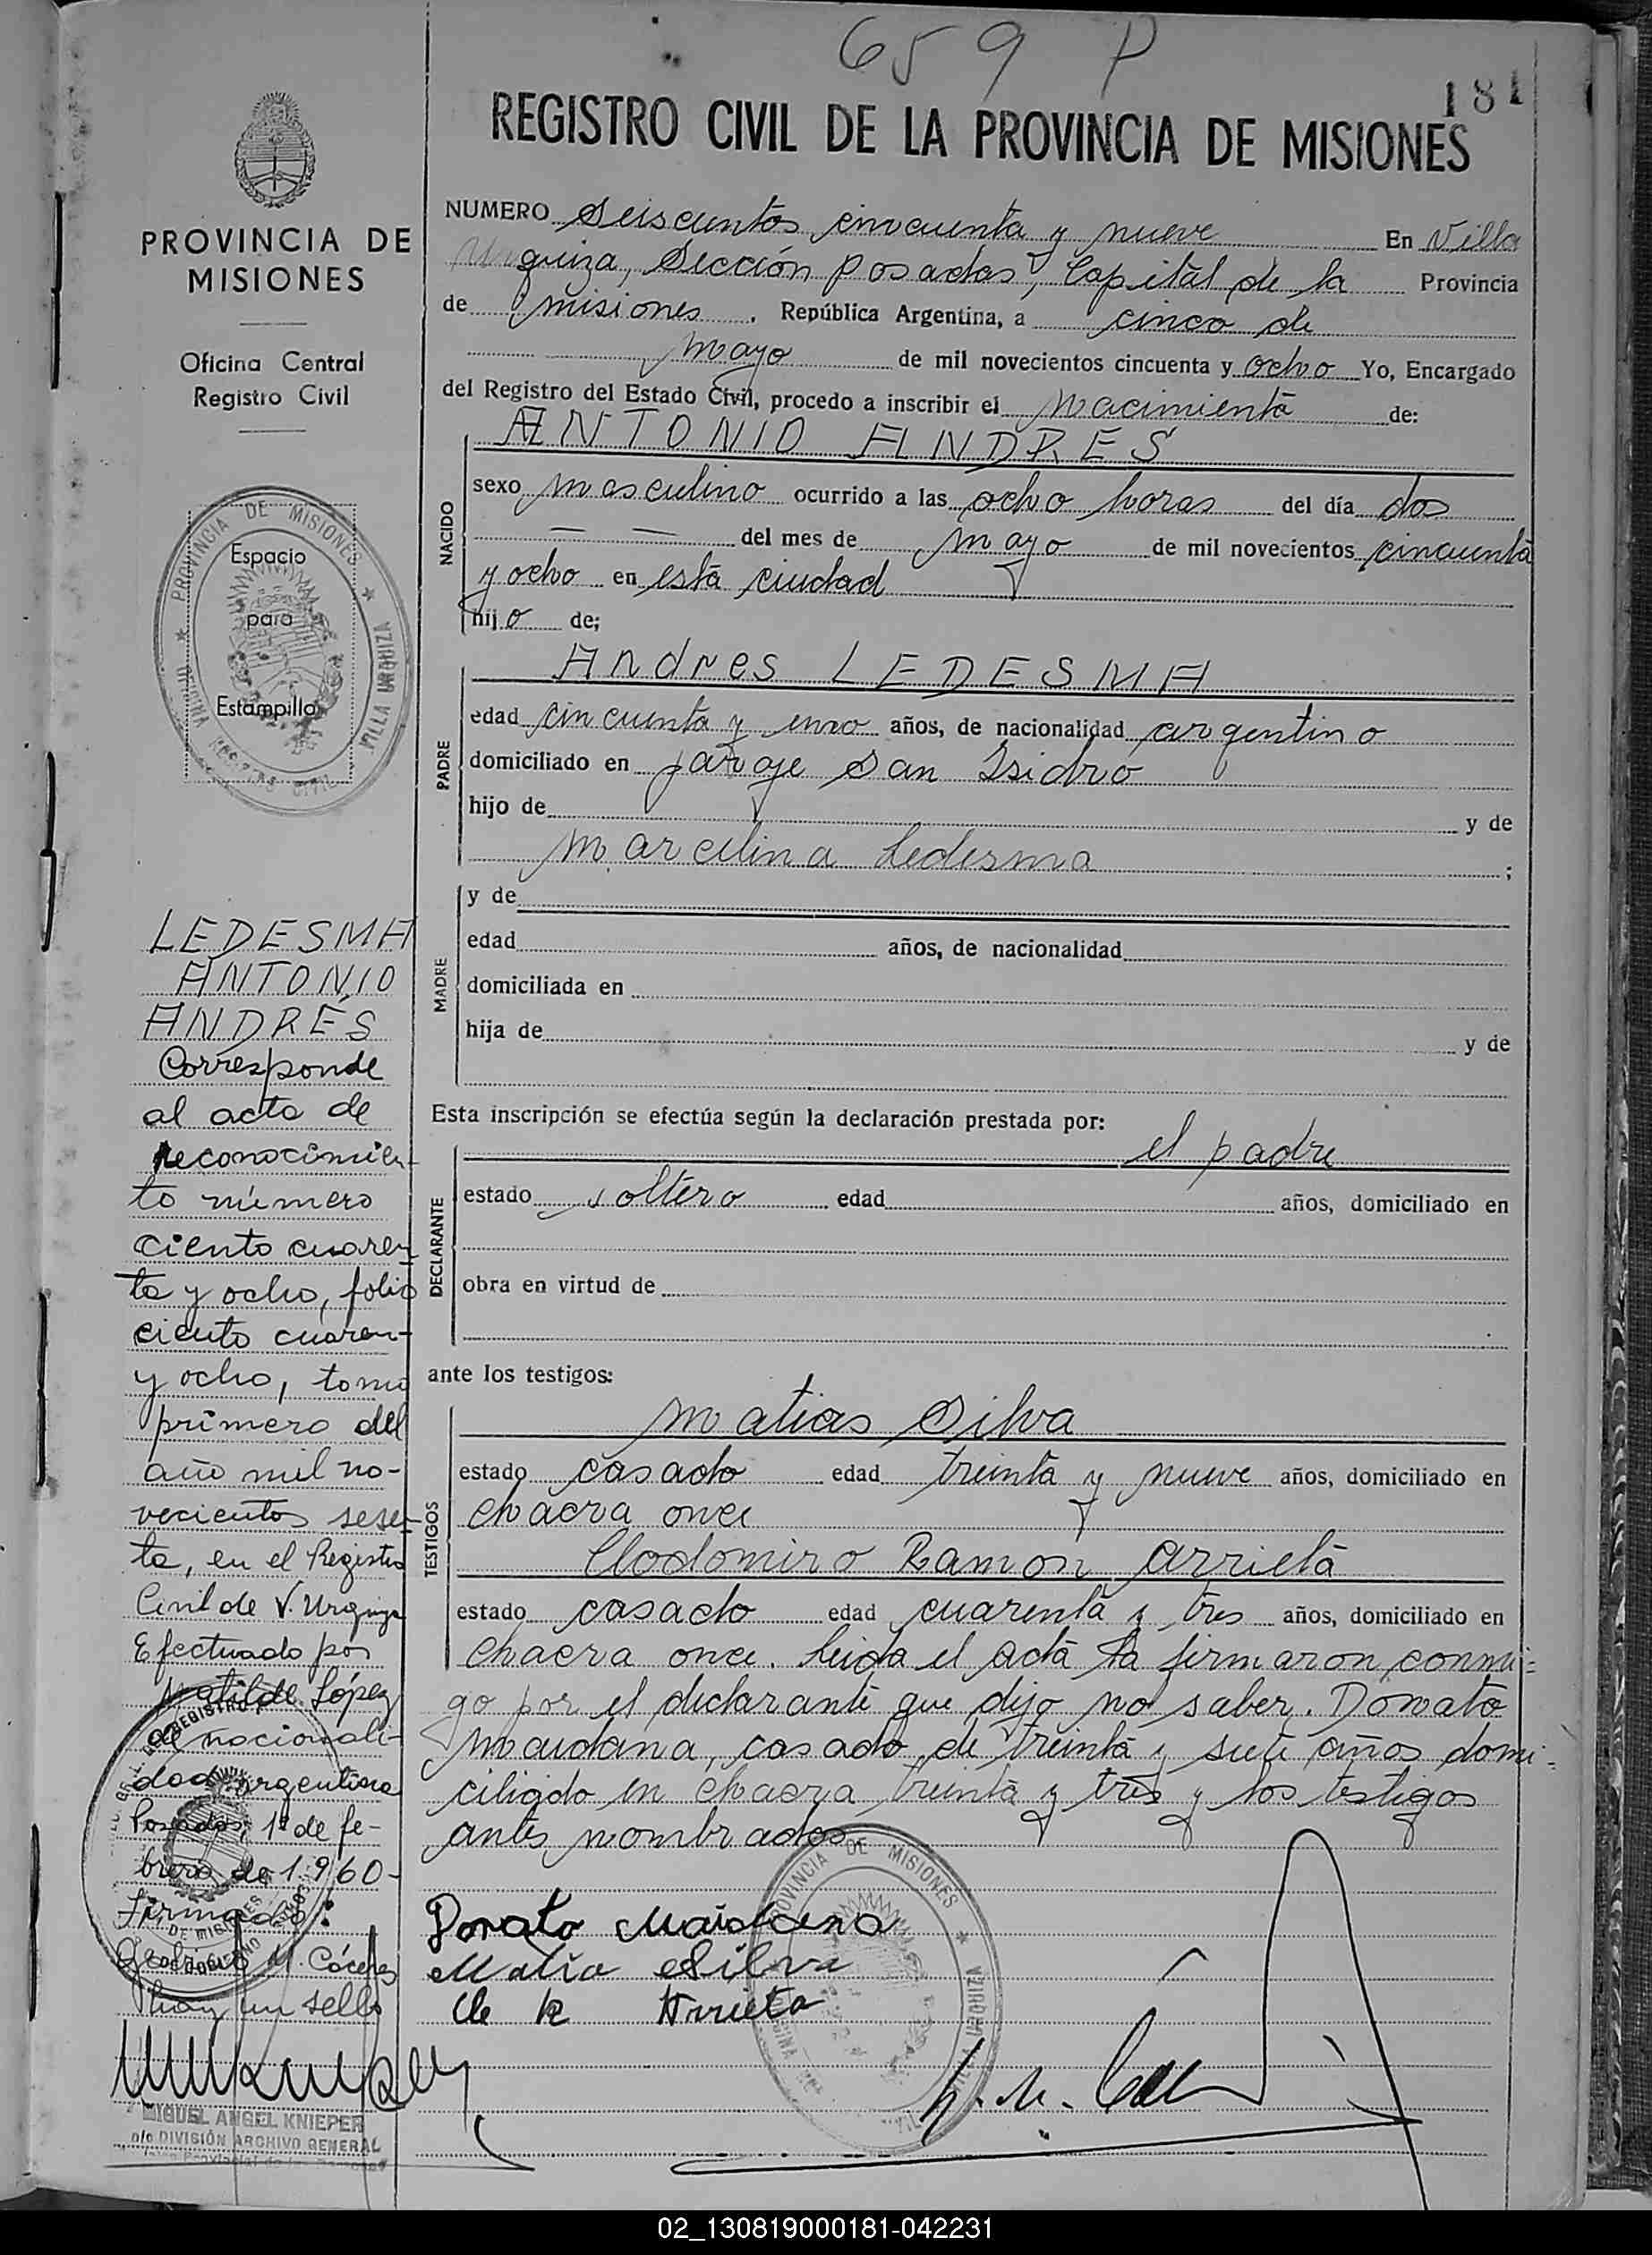 659 P
181
REGISTRO CIVIL DE LA PROVINCIA DE MISIONES
PROVINCIA DE
MISIONES
Oficina Central
Registro Civil
PROVINCIA DE MISIONES
VILLA URQUIZA
Espacio
para
Estampilla
LEDESMA
ANTONIO
ANDRÉS
Corresponde
al acta de
reconocimien-
to número
ciento cuaren-
ta y ocho, folio
ciento cuaren-
y ocho, tomo
primero del
año mil no-
vecientos sesen-
ta, en el Registro
Civil de V. Urquiza
Efectuado por
Matilde López
de nacionali-
dad argentina
Posadas, 1º de fe-
brero de 1960-
Firmado:
M. Cáceres
hay un sello
MIGUEL ANGEL KNIEPER
DIVISIÓN ARCHIVO GENERAL
NUMERO Seiscientos cincuenta y nueve En Villa
Urquiza, Sección Posadas, Capital de la Provincia
de Misiones. República Argentina, a cinco de
Mayo de mil novecientos cincuenta y ocho Yo, Encargado
del Registro del Estado Civil, procedo a inscribir el Nacimiento de:
NACIDO
ANTONIO ANDRES
sexo masculino ocurrido a las ocho horas del día dos
— — del mes de mayo de mil novecientos cincuenta
y ocho en esta ciudad
hijo de;
PADRE
Andres LEDESMA
edad cincuenta y uno años, de nacionalidad argentino
domiciliado en paraje San Isidro
hijo de y de
Marcelina Ledesma ;
MADRE
y de
edad años, de nacionalidad
domiciliada en
hija de y de
Esta inscripción se efectúa según la declaración prestada por:
DECLARANTE
el padre
estado soltero edad años, domiciliado en
obra en virtud de
ante los testigos:
TESTIGOS
Matias Silva
estado casado edad treinta y nueve años, domiciliado en
chacra once
Clodomiro Ramon Arrieta
estado casado edad cuarenta y tres años, domiciliado en
chacra once. Leida el acta la firmaron conmi=
go por el declarante que dijo no saber. Donato
Maidana, casado de treinta y siete años domi=
ciliado en chacra treinta y tres y los testigos
antes nombrados
Donato Maidana
Matia Silva
Cle R Arrieta
PROVINCIA DE MISIONES
VILLA URQUIZA
02_130819000181-042231